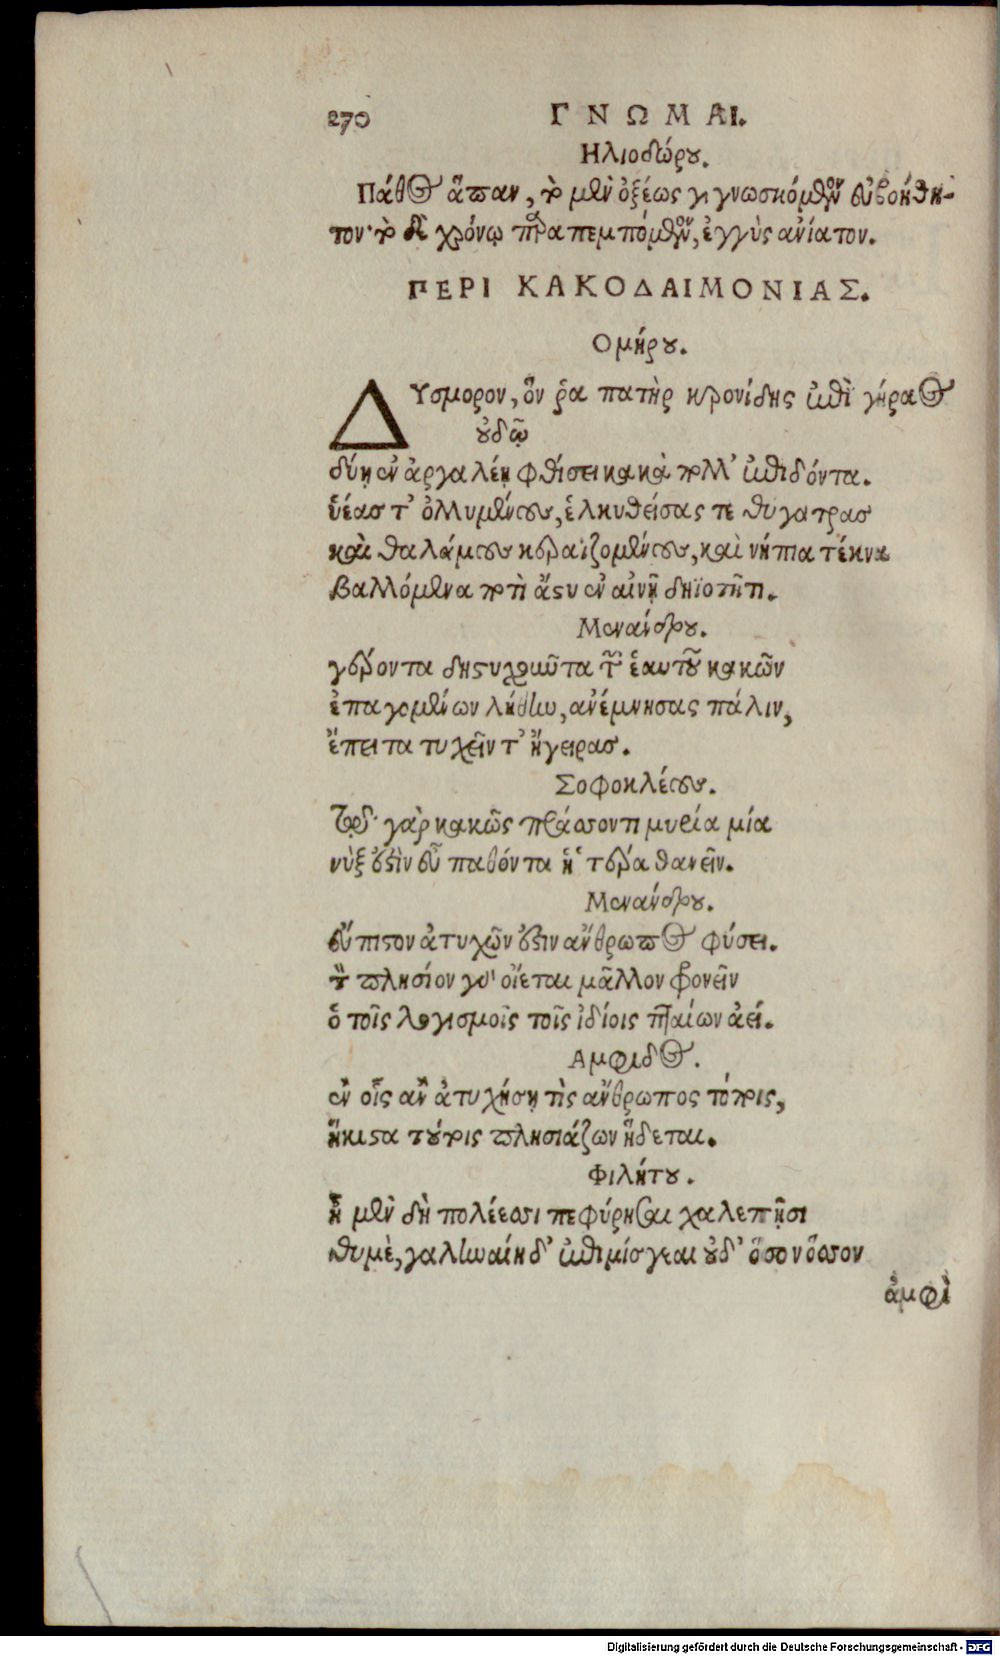 270 ΓΝΩΜΑΙ.
Ηλιοδώρου.
Πάθος ἅπαν, τὸ μὲν ὀξέως γιγνωσκόμενον εὐβοήθη-
τον· τὸ δὲ χρόνῳ παραπεμπόμενον, ἐγγὺς ἀνίατον.
ΠΕΡΙ ΚΑΚΟΔΑΙΜΟΝΙΑΣ.
Ομήρου.
ΔΥσμορον, ὅν ῥα πατὴρ κρονίδης ἐπὶ γήραος
οὐδῷ
δύῃ ἐν ἀργαλέῃ φθίσει κακὰ πολλ' ἐπιδόντα.
ὑέας τ' ὀλλυμένους, ἑλκυθείσας τε θυγατρας
καὶ θαλάμους κεραϊζομένους, καὶ νήπια τέκνα
βαλλόμενα ποτὶ ἄστυ ἐν αἰνῇ δηϊοτῆτι.
Μενάνδρου.
γέροντα δυστυχοῦντα τῶν ἑαυτοῦ κακῶν
ἐπαγομένων λήθην, ἀνέμνησας πάλιν,
ἔπειτα τυχεῖν τ' ἤγειρας.
Σοφοκλέους.
Τῷδ· γὰρ κακῶς πράσσοντι μυρία μία
νὺξ ἐστὶν εὖ παθόντα ἢ ἕτερα θανεῖν.
Μενάνδρου.
εὔπιστον ἀτυχῶν ἐστιν ἄνθρωπος φύσει.
τὸν πλησίον γὰρ οἴεται μᾶλλον φρονεῖν
ὁ τοῖς λογισμοῖς τοῖς ἰδίοις πταίων ἀεί.
Αμφιδος.
ἐν οἷς ἂν ἀτυχήσῃ τὶς ἄνθρωπος τόποις,
ἥκιστα τούτοις πλησιάζων ἥδεται.
Φιλήτου.
ἦ μὲν δὴ πολέεσσι πεφύρησαι χαλεπῇσι
θυμὲ, γαληναίη δ' ἐπιμίσγεαι οὐδ' ὅσον ὅσσον
ἀμφὶ
Digitalisierung gefördert durch die Deutsche Forschungsgemeinschaft - DFG